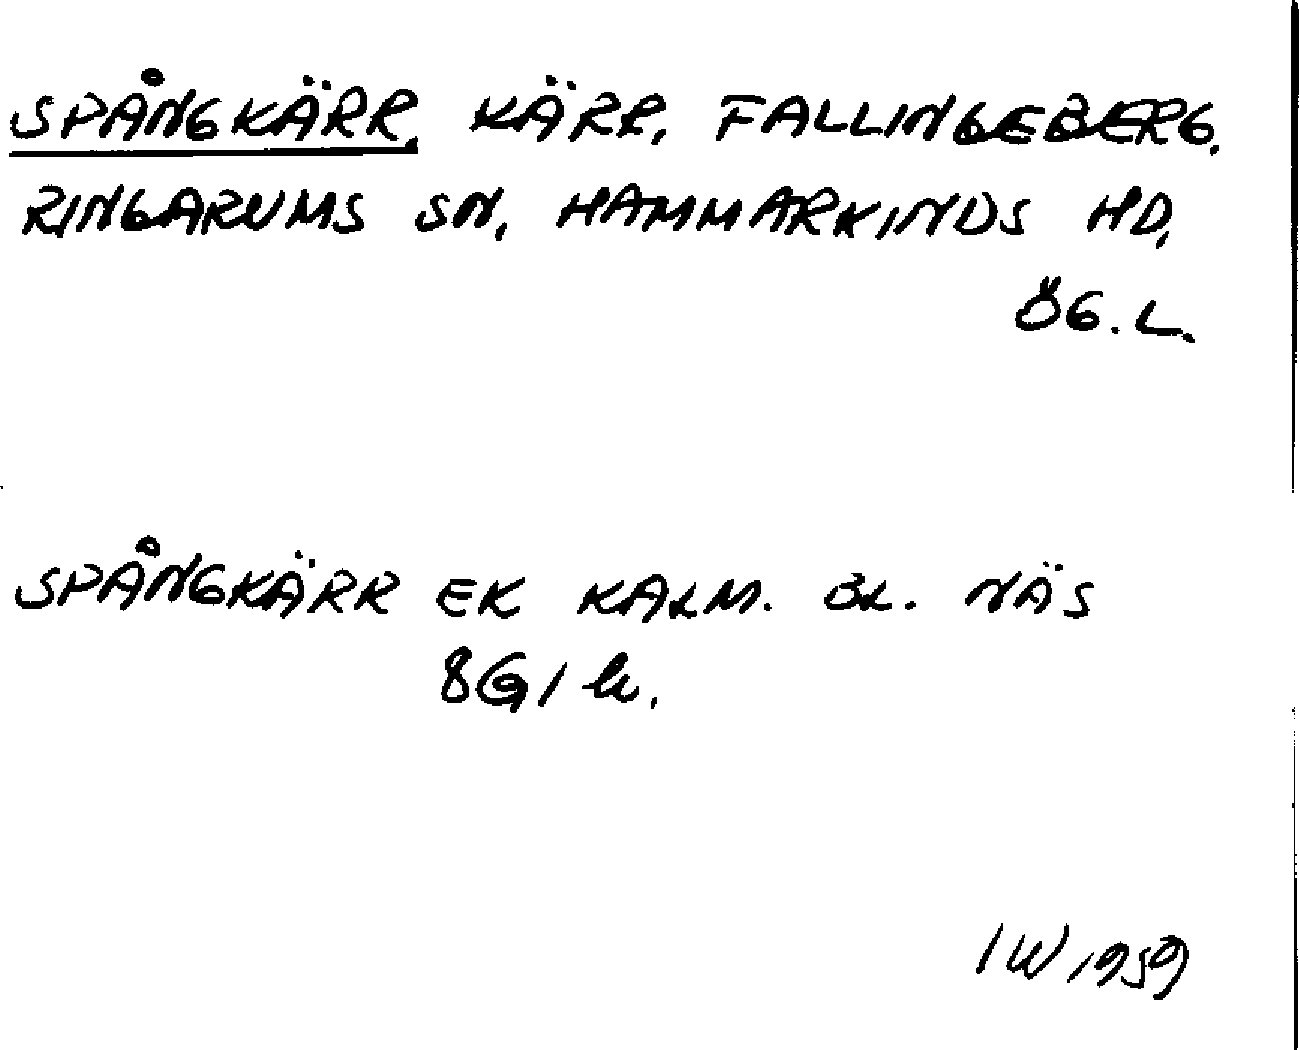 SPÅNGKÄRR, KÄRR, FALLINGEBERG.
RINGARUMS SN, HAMMARKINDS HD,
ÖG. L.
SPÅNGKÄRR EK KALM. BL. NÄS
8G1k.
IW 1959